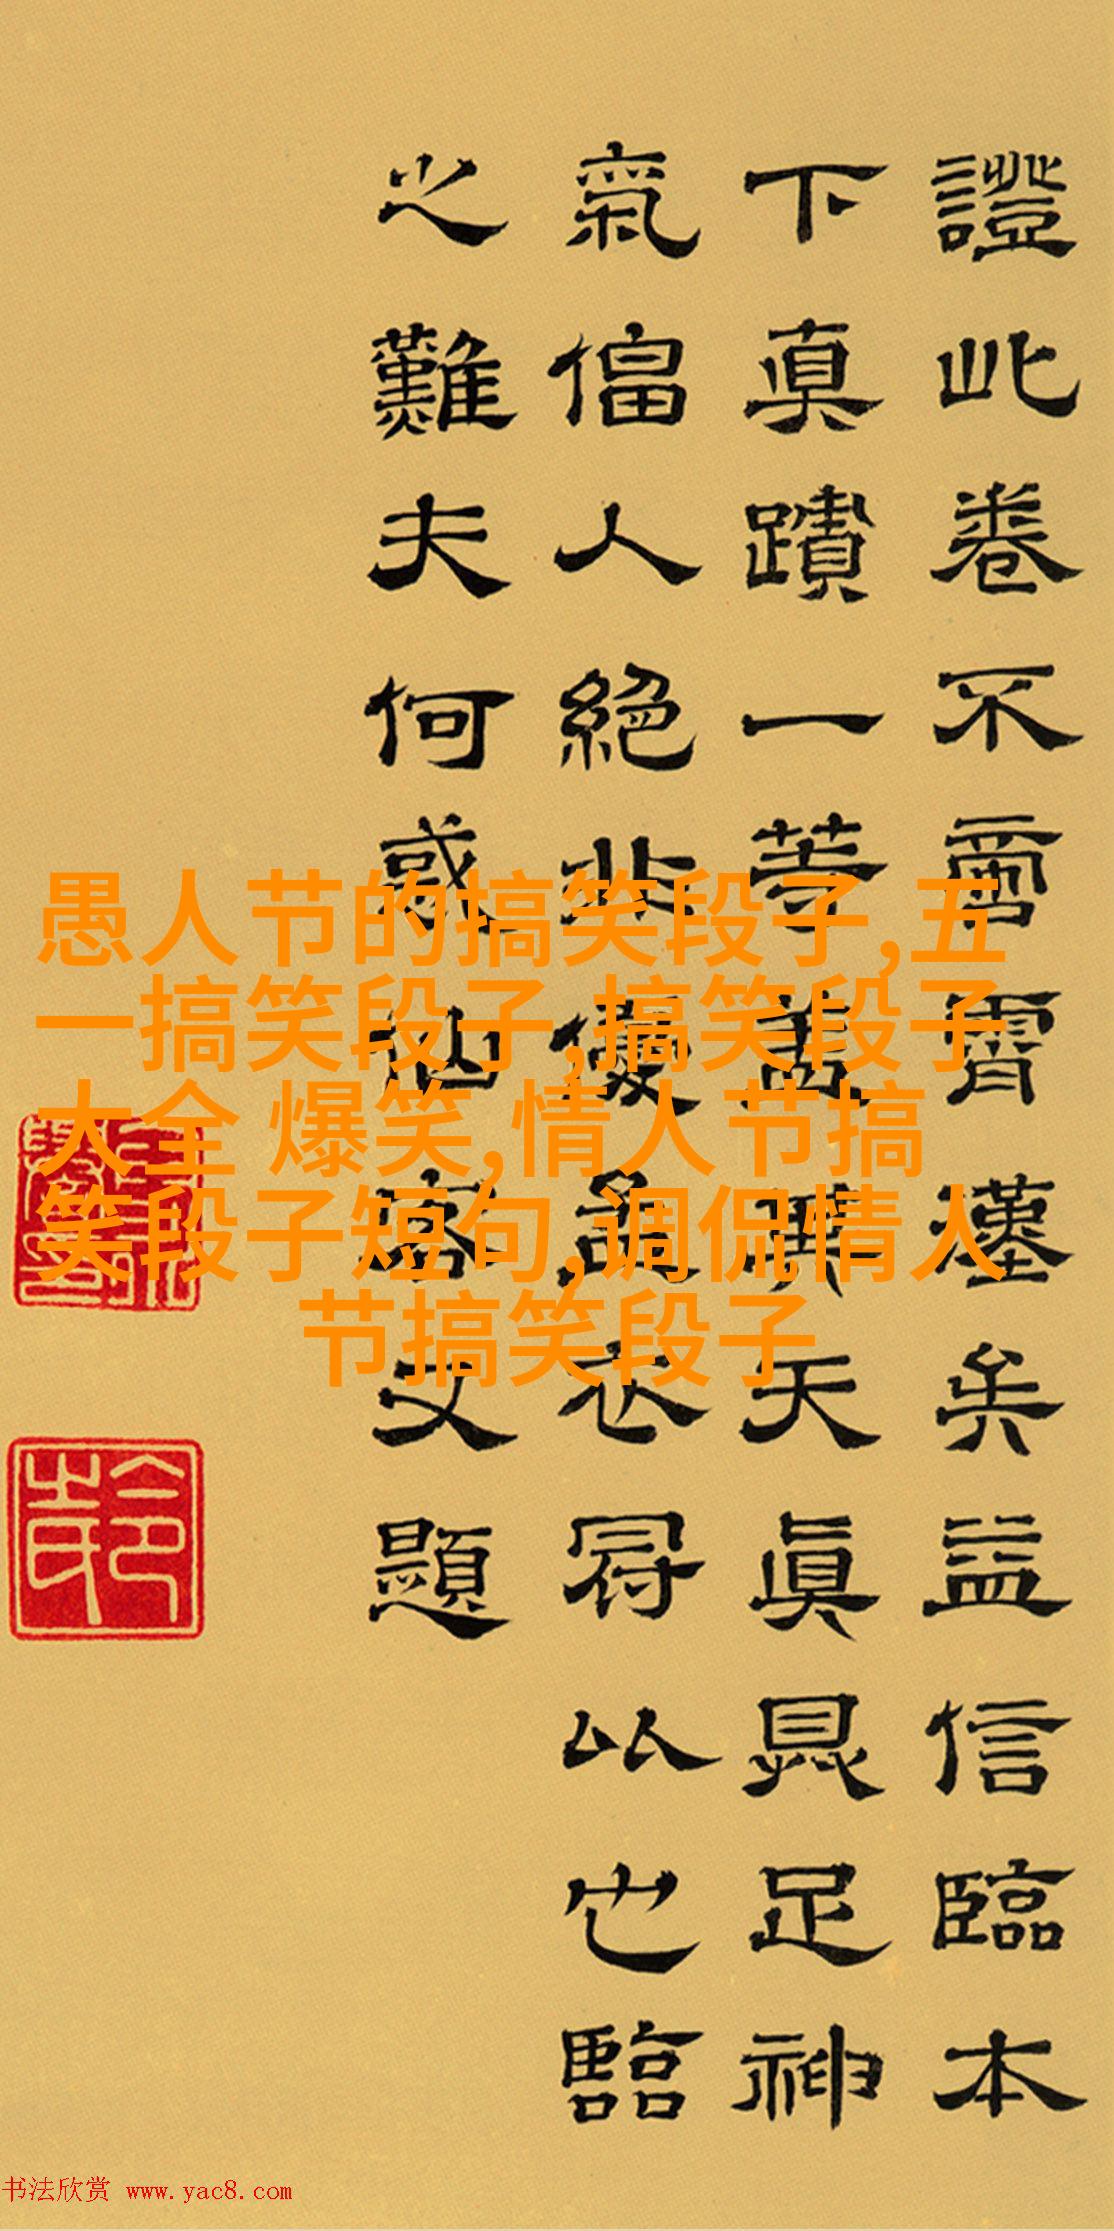 證此卷不啻霄壤矣益信臨本
下真蹟一等蓋異天真具足神
氣偪人絕非優孟衣冠以也臨
之難夫何惑
文題
愚人节的搞笑段子,五
一搞笑段子,搞笑段子
大全 爆笑,情人节搞
笑段子短句,调侃情人
节搞笑段子
书法欣赏 www.yac8.com